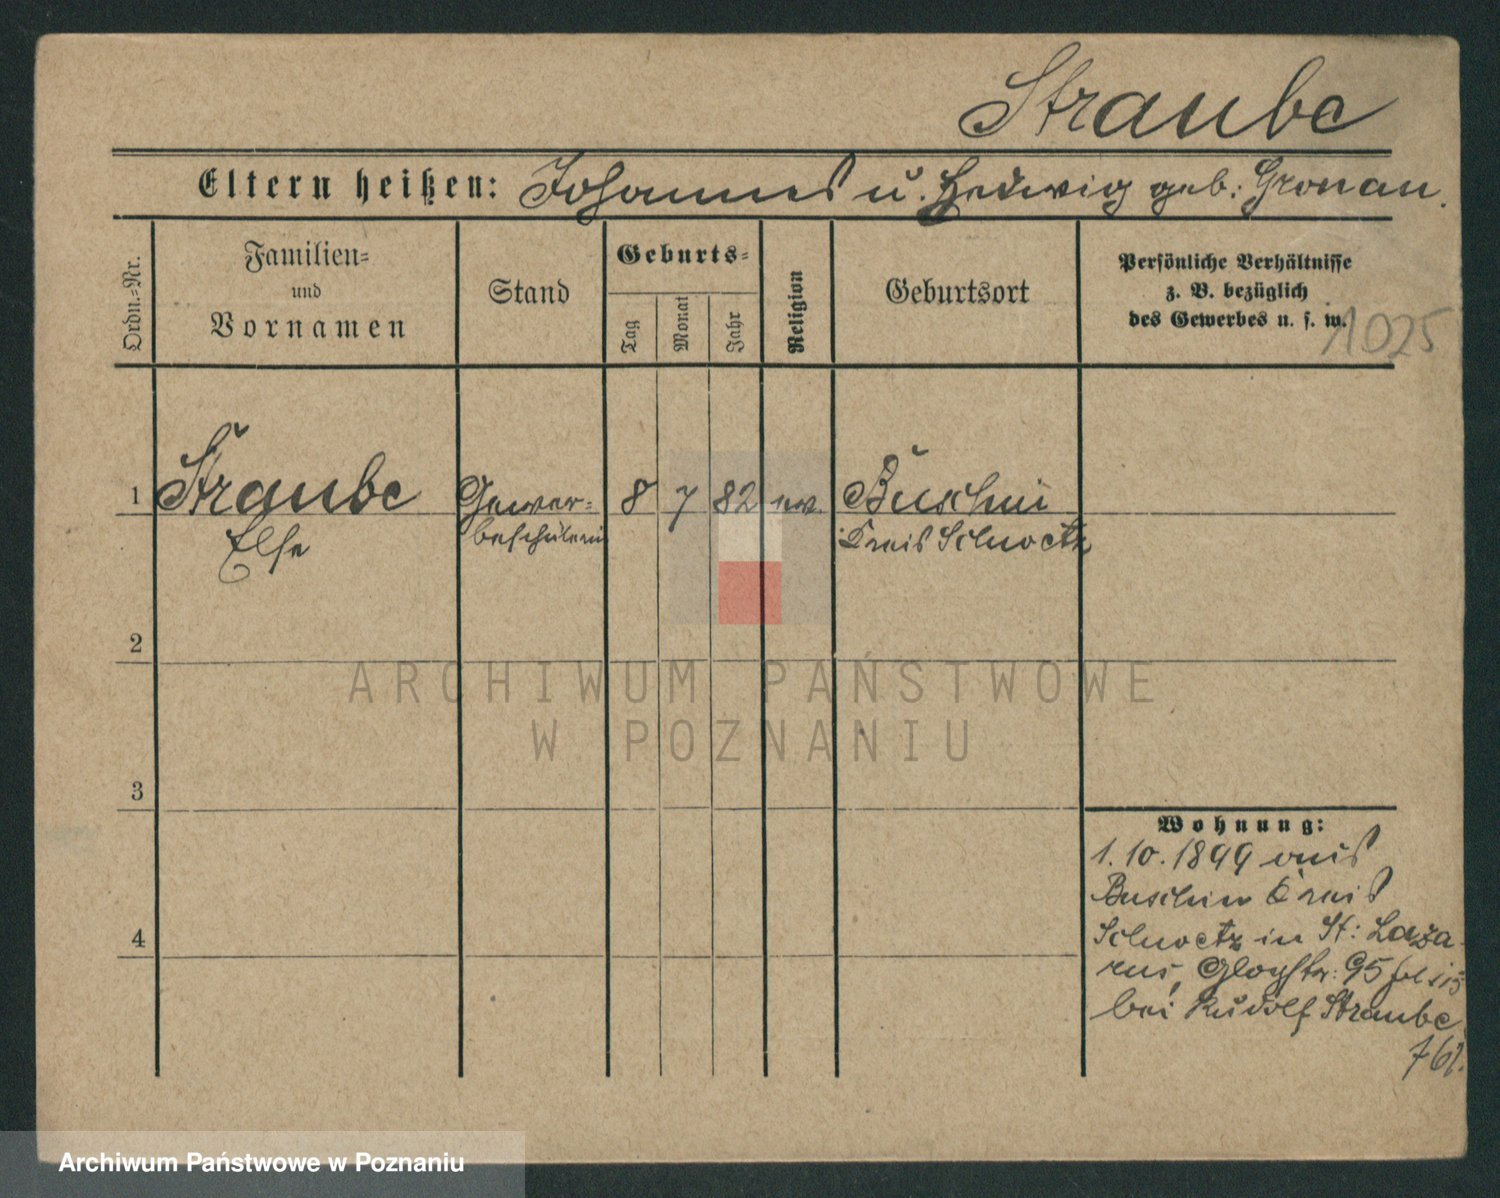 Straube
Eltern heißen: Johannes u. Hedwig geb: Gronau.
Ordn.=Nr.
Familien=
und
Vornamen
Stand
Geburts=
Tag
Monat
Jahr
Religion
Geburtsort
Persönliche Verhältnisse
z. B. bezüglich
des Gewerbes u. s. w.
1025
1 Straube Gewer= 8 7 82 ev. Buschin
Else beschülerin Kreis Schwetz
2
ARCHIWUM PAŃSTWOWE
W POZNANIU
3
Wohnung:
1. 10. 1899 aus
Buschin Kreis
4
Schwetz in St: Laza
rus, 95
bei Rudolf Straube
Archiwum Państwowe w Poznaniu